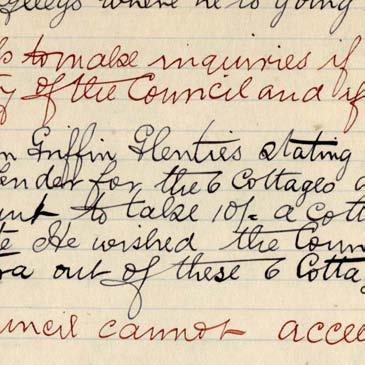 where he is going
to make inquiries if
of the Council and if
Griffin Glenties stating
for the 6 Cottages
to take 10/- a Cott
He wished the Coun
out of these 6 Cotta
uncil cannot accee